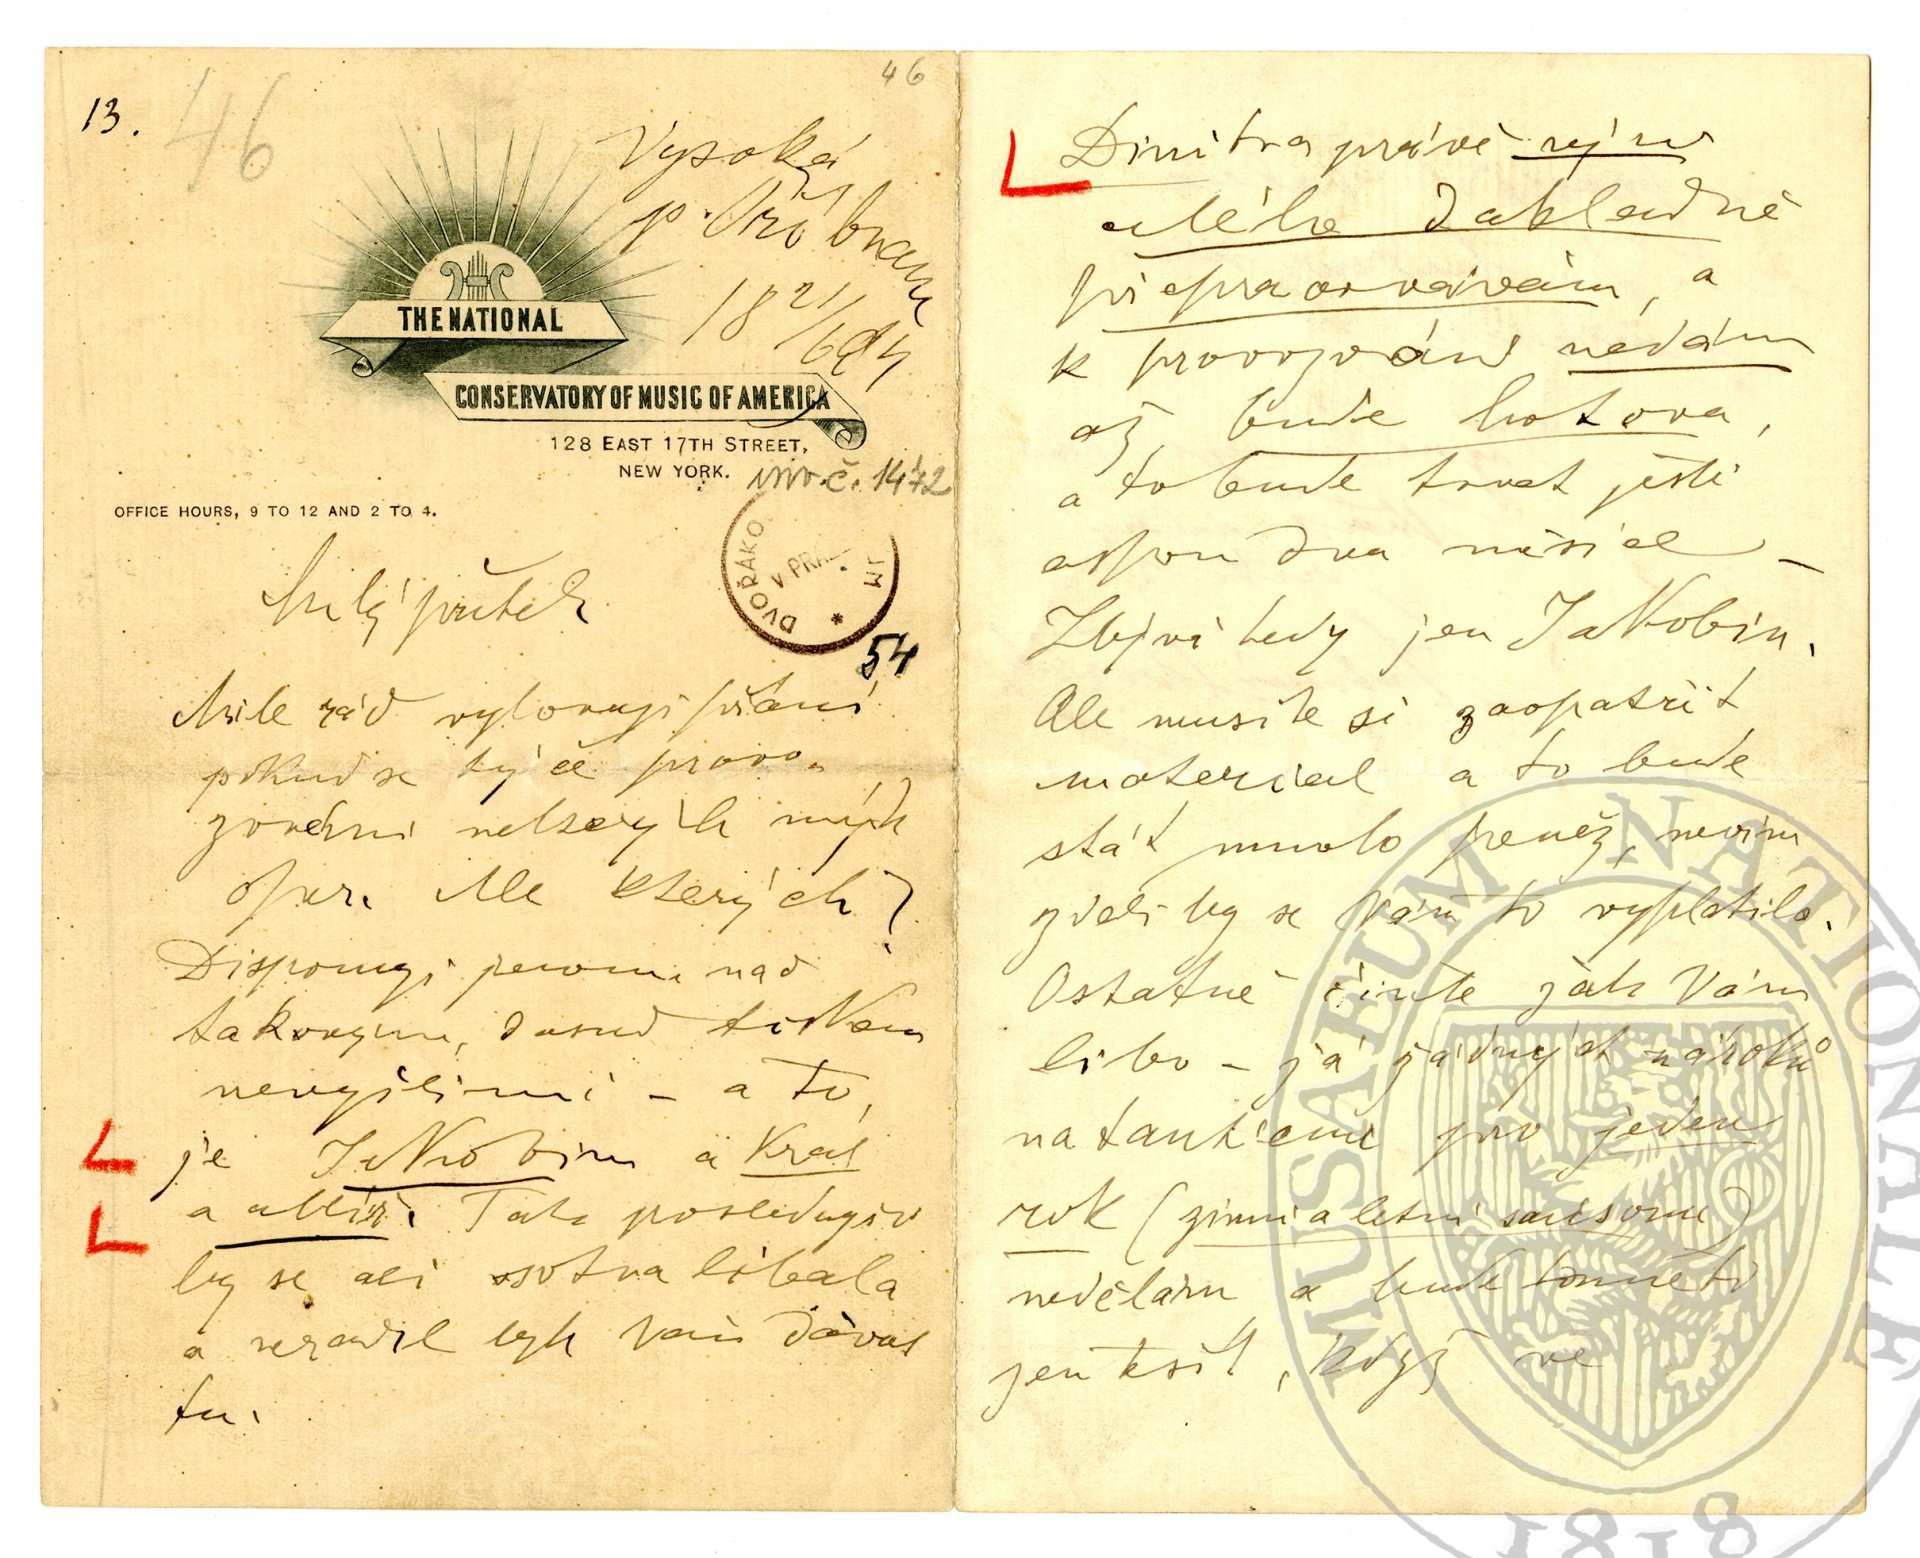 13.
46
46
Vysoká
p. Příbram
18 21/6 94
THE NATIONAL
CONSERVATORY OF MUSIC OF AMERICA
128 EAST 17TH STREET,
NEW YORK.
inv. č. 1472
OFFICE HOURS, 9 TO 12 AND 2 TO 4.
DVOŘÁKO
V PRA
M
54
Milý příteli
Mile rád vyhovuji přání
pokud se týče provo-
zování některých mých
oper. Ale kterých?
Disponuji jenom nad
takovými, dosud tiskem
nevyšlimi - a to,
je Jakobin a Král
a uhlíř. Tato poslednější
by se asi sotva líbala
a nerad bych Vám dával
tu.
Dimitra právě nyní
úplně důkladně
přepracovávám, a
k provozování nedám
až bude hotova,
a to bude trvat ještě
aspon dva měsíce -
Zbývá tedy jen Jakobin.
Ale musíte si zaopatřit
material a to bude
stát mnoho peněz, nevím
zdali by se Vám to vyplatilo.
Ostatně čiňte jak Vám
libo - já žádných nároků
na tantiemi pro jeden
rok (zimní a letní saisonu)
nedělám a bude mně to
jen těšit, když ve
MUSAEUM NATIONALE
1818